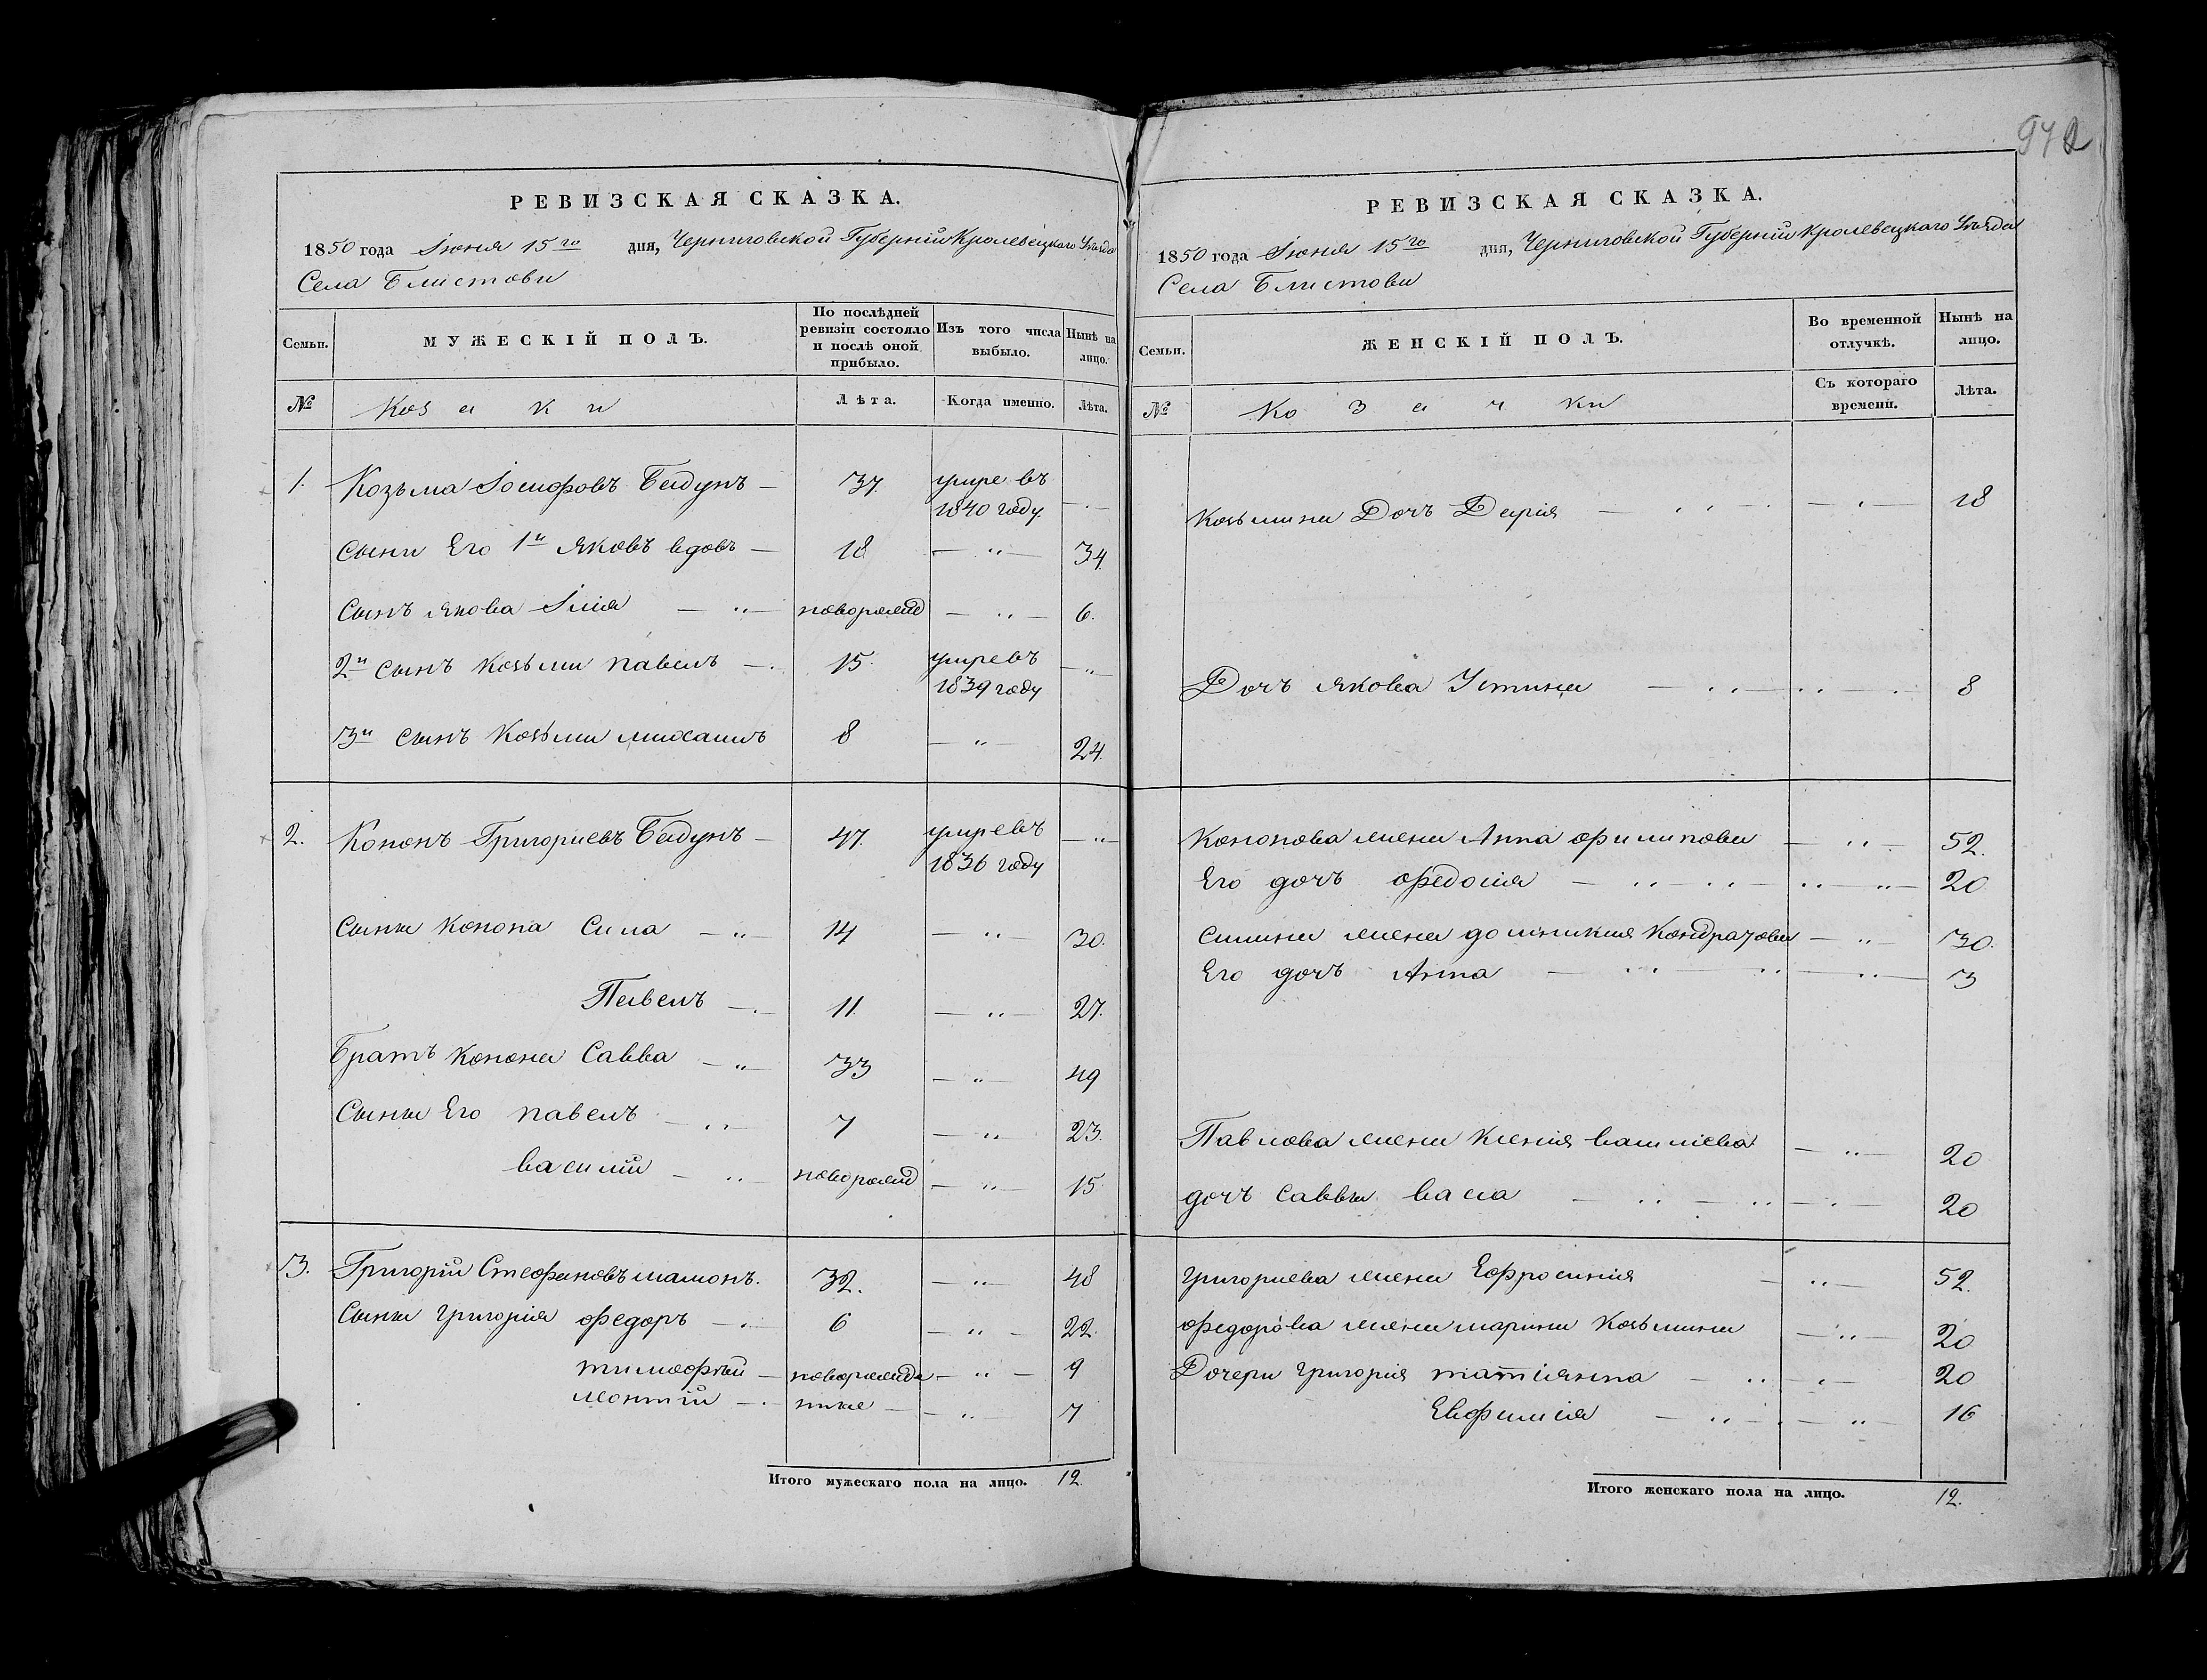 972
РЕВИЗСКАЯ СКАЗКА.
1850 года Іюня 15го дня, Черниговской Губерніи Кролевецкаго Уѣзда
Села Блистови
Семьи. МУЖЕСКІЙ ПОЛЪ. По послѣдней ревизіи состояло и послѣ оной прибыло. Изъ того числа выбыло. Нынѣ на лицо.
№ Козаки Лѣта. Когда именно. Лѣта.
1. Козьма Іосифовъ Бадунъ — 37. умре въ 1840 году. —
Сыни Его 1й Яковъ вдовъ — 18 — " — 34.
Сынъ Якова Ілія — " — новорожд — " — 6.
2й сынъ Козьми Павелъ — 15. умре въ 1839 году — "
3й сынъ Козьми Михаилъ 8 — " — 24.
2. Кононъ Григориевъ Бадунъ — 47. умре въ 1836 году — " —
Сыны Конона Сила — " — 14 — " — 30.
Павелъ — 11. — " — 27.
Братъ Конона Савва — " — 33 — " — 49
Сыны Его Павелъ — " — 7 — " — 23.
Василій — " новорожд — " — 15.
3. Григорій Стефановъ Мамонъ. 32. — " — 48
Сыны Григорія Федоръ — " — 6 — " — 22.
Тимофѣй — новорожде — " — 9
Леонтій — тоже — " — 7
Итого мужескаго пола на лицо. 12.
РЕВИЗСКАЯ СКАЗКА.
1850 года Іюня 15го дня, Черниговской Губерніи Кролевецкаго Уѣзда
Села Блистови
Семьи. ЖЕНСКІЙ ПОЛЪ. Во временной отлучкѣ. Нынѣ на лицо.
№ Козачки Съ котораго времени. Лѣта.
Козьмина Дочъ Дарія — " — 18
Дочъ Якова Устина — " — 8
Кононова жена Анна Филипова — " — 52.
Его дочъ Федосія — " — 20
Силина жена Домникия Кондратова — " — 30.
Его дочъ Анна — " — 3
Павлова жена Ксенія Василіева — " — 20
дочъ Саввы Васса — " — 20
Григориева жена Ефросинія — " — 52.
Федорова жена Марина Козьмина — " — 20
Дочери Григорія Татіянна — " — 20
Евфимія — " — 16
Итого женскаго пола на лицо. 12.